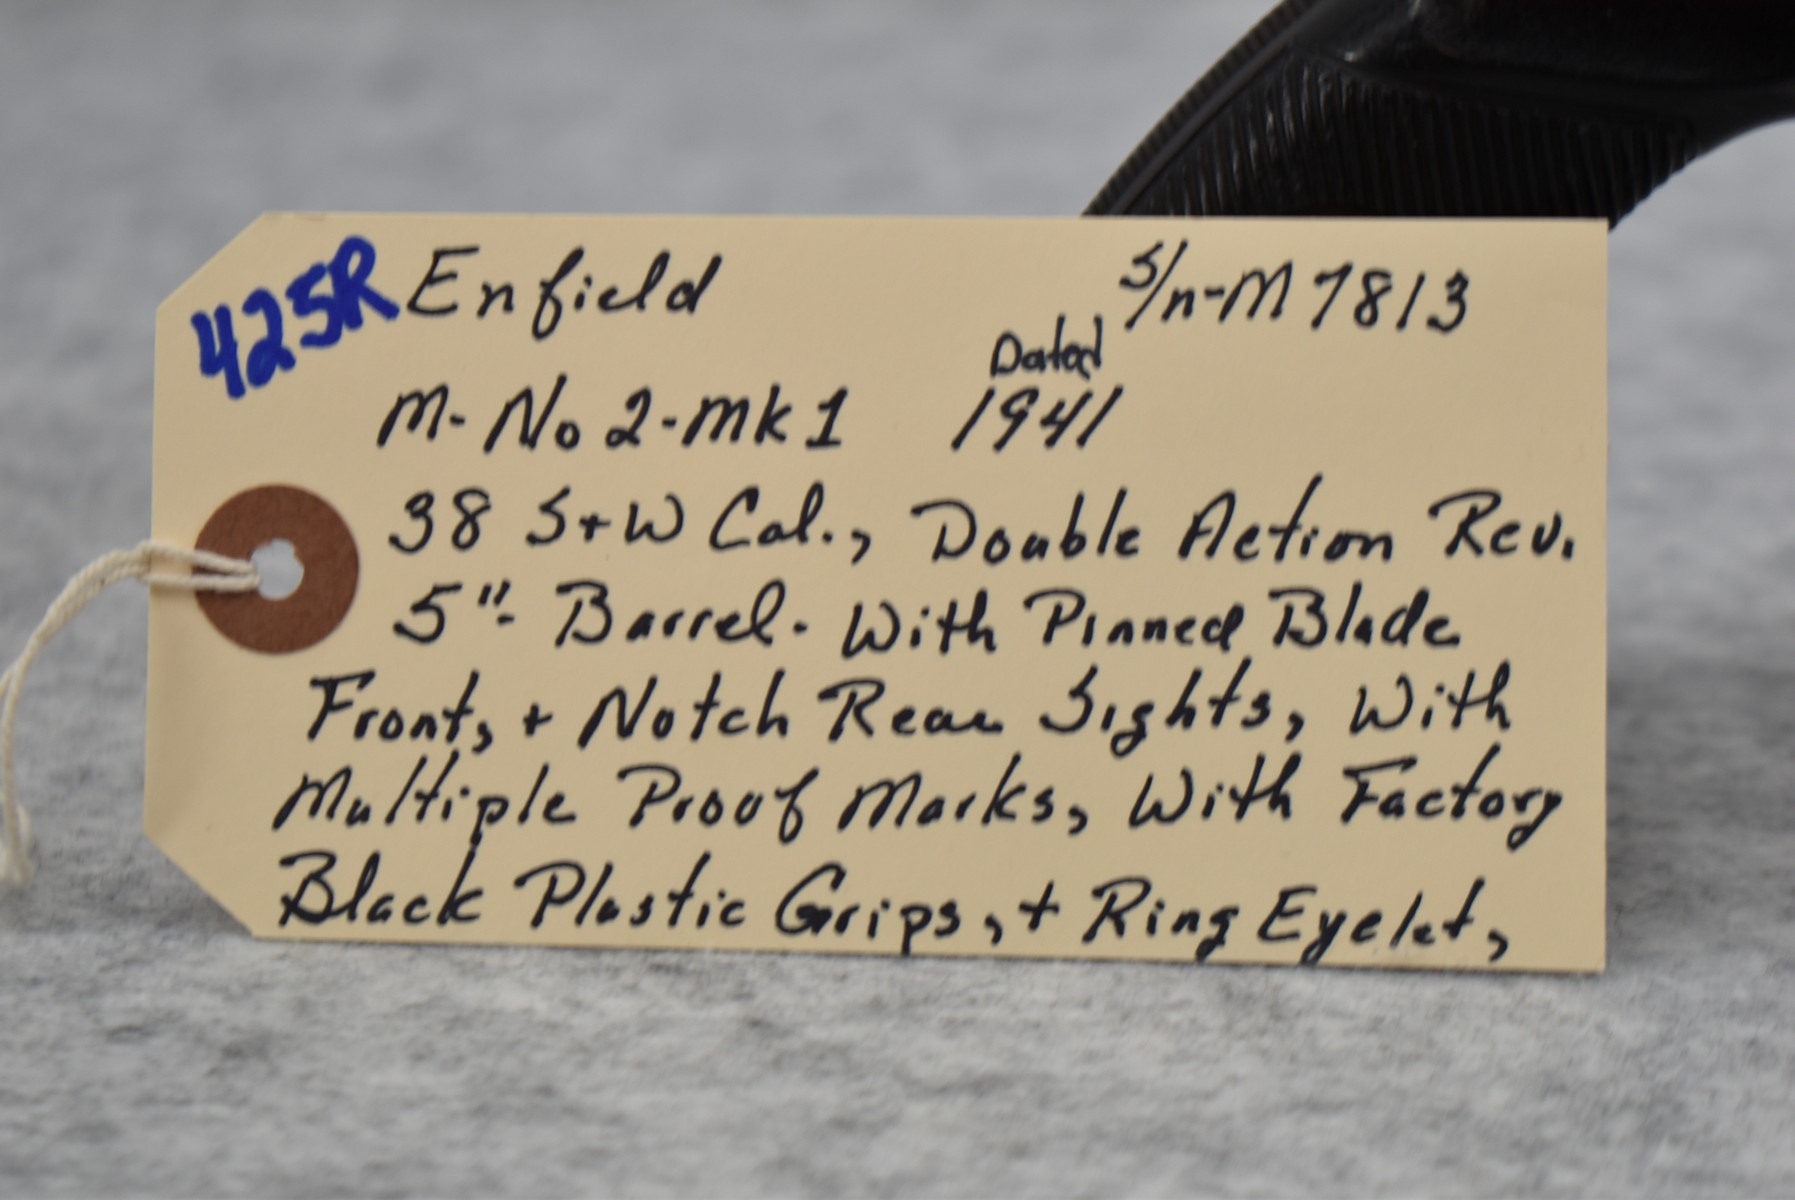 425R Enfield S/n-M7813
Dated
M-No2-MK1 1941
38 S+W Cal., Double Action Rev.
5"- Barrel- With Pinned Blade
Front, + Notch Rear Sights, With
Multiple Proof Marks, With Factory
Black Plastic Grips, + Ring Eyelet,